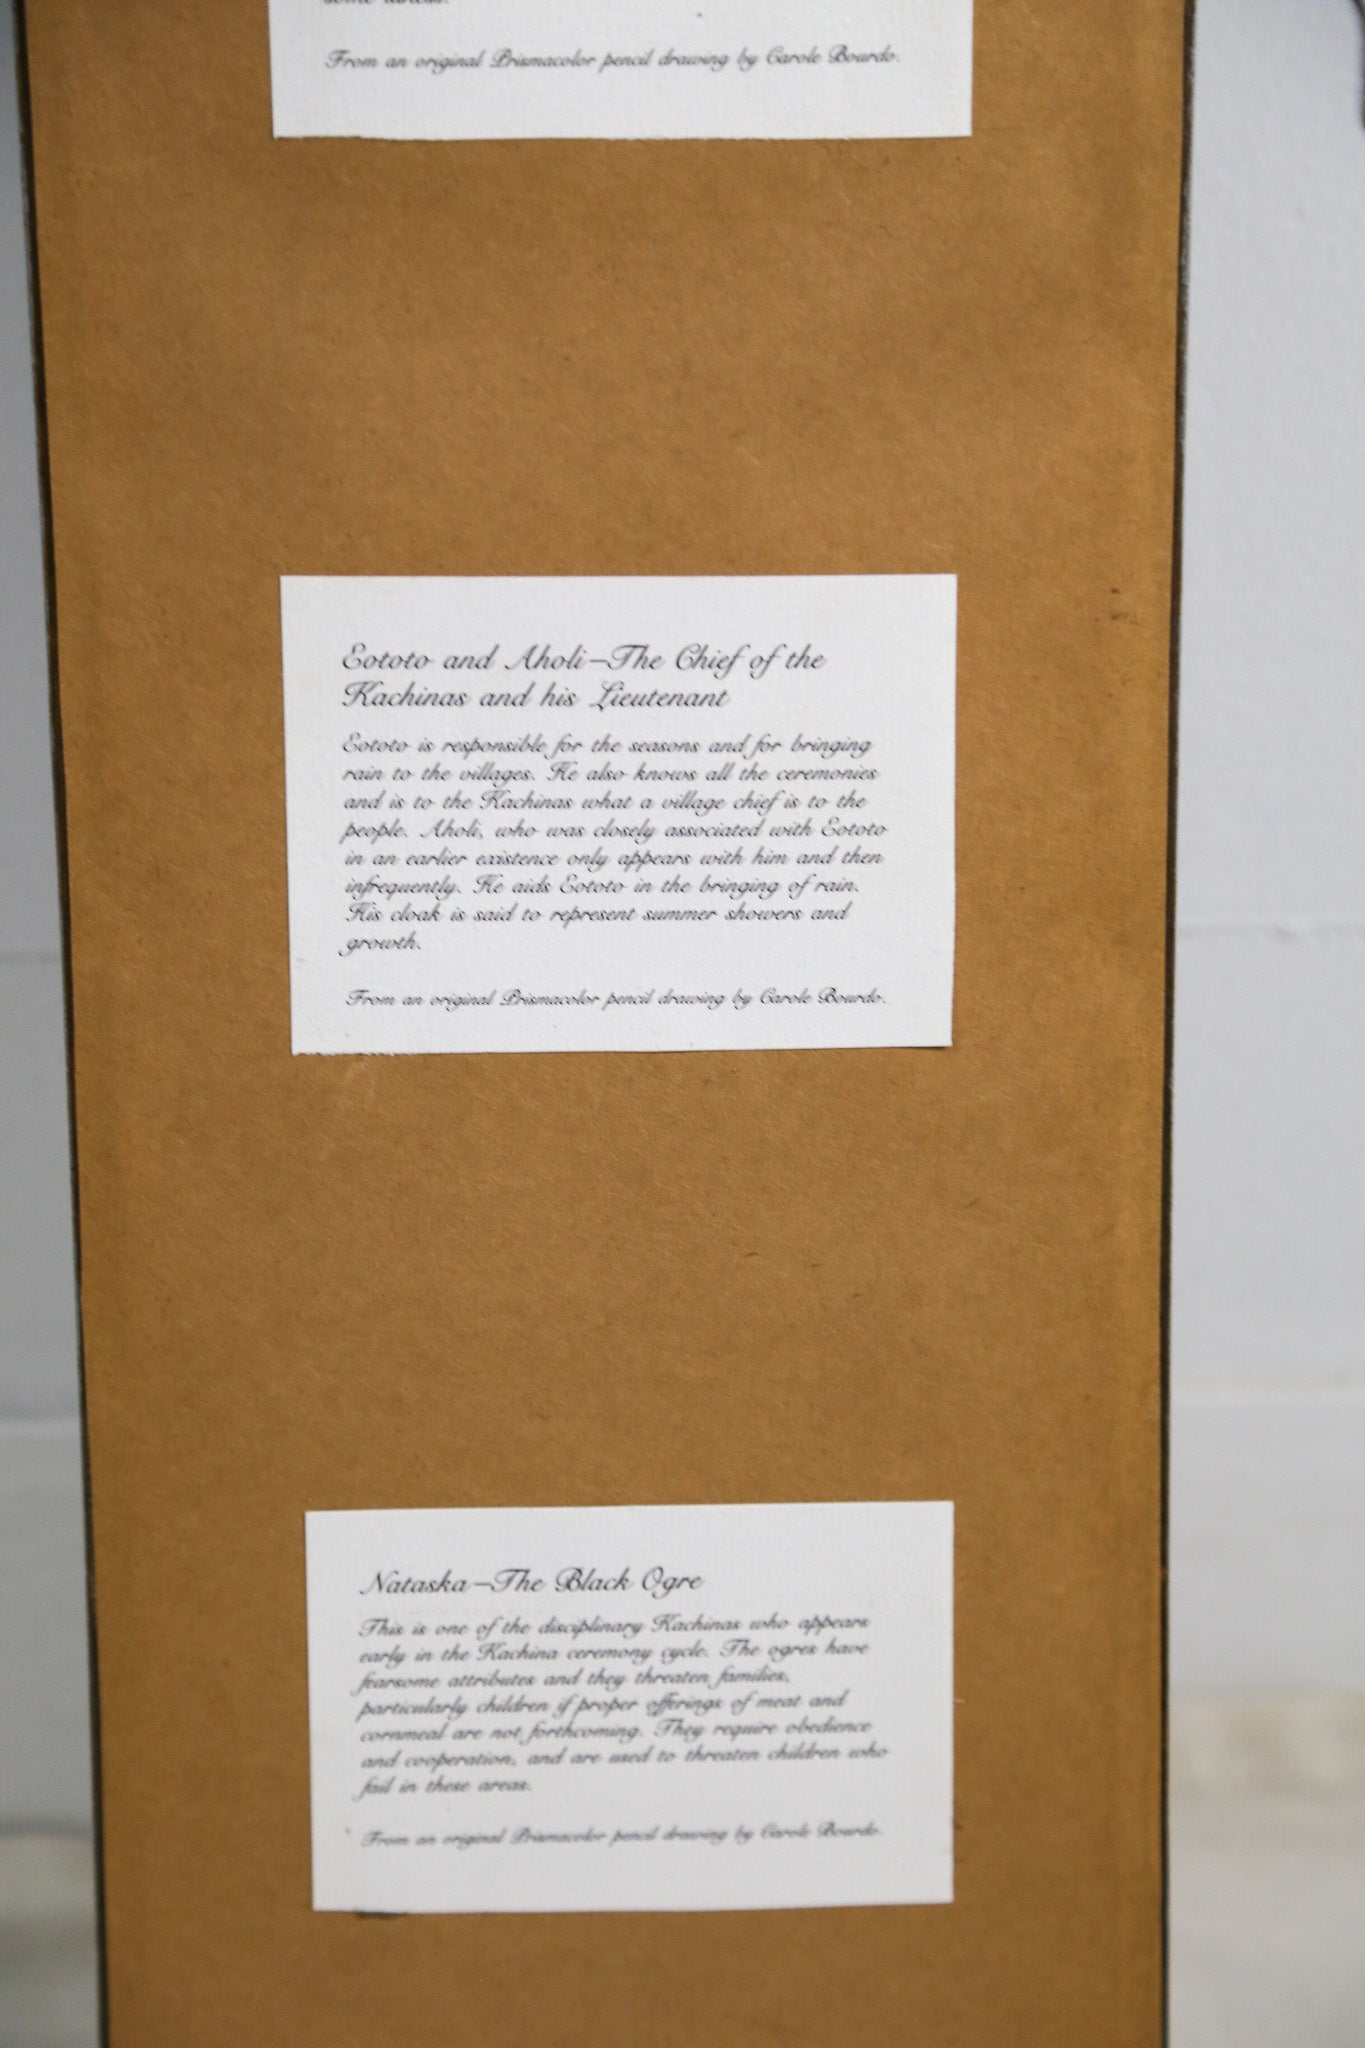 From an original Prismacolor pencil drawing by Carole Bourdo.
Eototo and Aholi—The Chief of the
Kachinas and his Lieutenant
Eototo is responsible for the seasons and for bringing
rain to the villages. He also knows all the ceremonies
and is to the Kachinas what a village chief is to the
people. Aholi, who was closely associated with Eototo
in an earlier existence only appears with him and then
infrequently. He aids Eototo in the bringing of rain.
His cloak is said to represent summer showers and
growth.
From an original Prismacolor pencil drawing by Carole Bourdo.
Nataska—The Black Ogre
This is one of the disciplinary Kachinas who appears
early in the Kachina ceremony cycle. The ogres have
fearsome attributes and they threaten families,
particularly children if proper offerings of meat and
cornmeal are not forthcoming. They require obedience
and cooperation, and are used to threaten children who
fail in these areas.
From an original Prismacolor pencil drawing by Carole Bourdo.